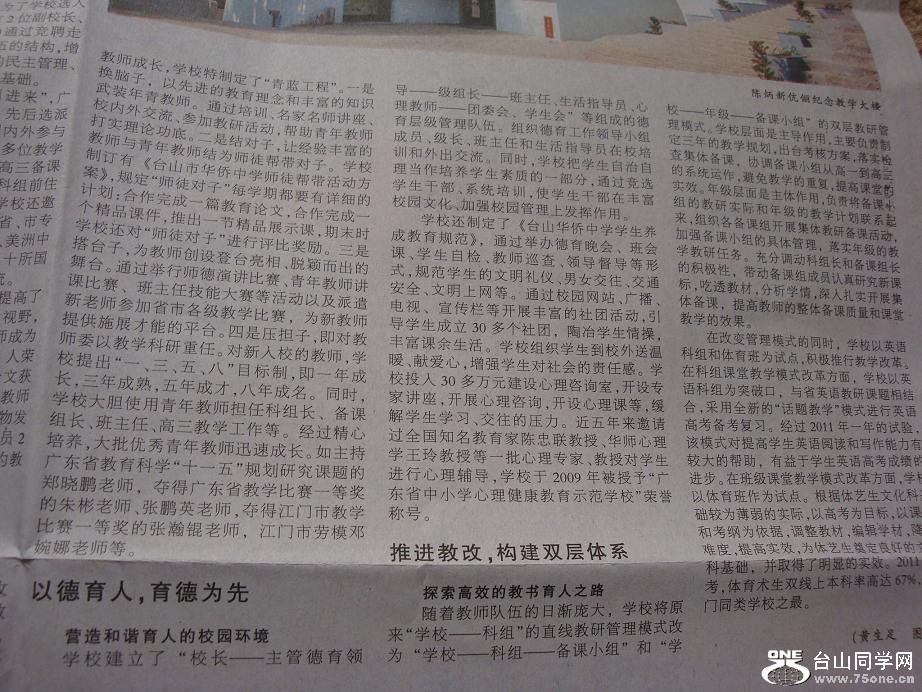 为了学校选人
2位副校长、
通过竞聘走
伍的结构,增
的民主管理、
基础。
引进来”,广
先后选派
国内外参与
多位教学
高三备课
科组前往
学校还邀
省、市专
、美洲中
十所国
流。
提高了
视野,
师成为
人荣
文获
教师
物发
员2
的教
教师成长,学校特制定了“青蓝工程”。一是
换脑子,以先进的教育理念和丰富的知识
武装年青教师。通过培训、名家名师讲座、
校内外交流、参加教研活动,帮助青年教师
打实理论功底。二是结对子,让经验丰富的
教师与青年教师结为师徒帮带对子。学校
制订有《台山市华侨中学师徒帮带活动方
案》,规定“师徒对子”每学期都要有详细的
计划:合作完成一篇教育论文,合作完成一
个精品课件,推出一节精品展示课,期末时
学校还对“师徒对子”进行评比奖励。三是
搭台子,为教师创设登台亮相、脱颖而出的
舞台。通过举行师德演讲比赛、青年教师讲
课比赛、班主任技能大赛等活动以及派遣
新老师参加省市各级教学比赛,为新教师
提供施展才能的平台。四是压担子,即对教
师委以教学科研重任。对新入校的教师,学
校提出“一、三、五、八”目标制,即一年成
长,三年成熟,五年成才,八年成名。同时,
学校大胆使用青年教师担任科组长、备课
组长、班主任、高三教学工作等。经过精心
培养,大批优秀青年教师迅速成长。如主持
广东省教育科学“十一五”规划研究课题的
郑晓鹏老师,夺得广东省教学比赛一等奖
的朱彬老师、张鹏英老师,夺得江门市教学
比赛一等奖的张瀚锟老师,江门市劳模邓
婉娜老师等。
以德育人,育德为先
营造和谐育人的校园环境
学校建立了“校长——主管德育领
导——级组长——班主任、生活指导员、心
理教师——团委会、学生会”等组成的德
育层级管理队伍。组织德育工作领导小组
成员、级长、班主任和生活指导员在校培
训和外出交流。同时,学校把学生自治自
理当作培养学生素质的一部分,通过竞选
学生干部、系统培训,使学生干部在丰富
校园文化、加强校园管理上发挥作用。
学校还制定了《台山华侨中学学生养
成教育规范》,通过举办德育晚会、班会
课、学生自检、教师巡查、领导督导等形
式,规范学生的文明礼仪、男女交往、交通
安全、文明上网等。通过校园网站、广播、
电视、宣传栏等开展丰富的社团活动,引
导学生成立30多个社团,陶冶学生情操,
丰富课余生活。学校组织学生到校外送温
暖、献爱心,增强学生对社会的责任感。学
校投入30多万元建设心理咨询室,开设专
家讲座,开展心理咨询,开设心理课等,缓
解学生学习、交往的压力。近五年来邀请
过全国知名教育家陈忠联教授、华师心理
学王玲教授等一批心理专家、教授对学生
进行心理辅导,学校于2009年被授予“广
东省中小学心理健康教育示范学校”荣誉
称号。
推进教改,构建双层体系
探索高效的教书育人之路
随着教师队伍的日渐庞大,学校将原
来“学校——科组”的直线教研管理模式改
为“学校——科组——备课小组”和“学
陈炳新伉俪纪念教学大楼
校——年级——备课小组”的双层教研管
理模式。学校层面是主导作用,主要负责制
定三年的教学规划,出台考核方案,落实检
查集体备课,协调备课小组从高一到高三
的系统运作,避免教学的重复,提高课堂的
实效。年级层面是主体作用,负责将备课小
组的教研实际和年级的教学计划联系起
来,组织各备课组开展集体教研备课活动,
加强备课小组的具体管理,落实年级的教
学教研任务。充分调动科组长和备课组长
的积极性,带动备课组成员认真研究新课
标,吃透教材,分析学情,深入扎实开展集
体备课,提高教师的整体备课质量和课堂
教学的效果。
在改变管理模式的同时,学校以英语
科组和体育班为试点,积极推行教学改革。
在科组课堂教学模式改革方面,学校以英
语科组为突破口,与省英语教研课题相结
合,采用全新的“话题教学”模式进行英语
高考备考复习。经过2011年一年的试验,
该模式对提高学生英语阅读和写作能力有
较大的帮助,有益于学生英语高考成绩的
进步。在班级课堂教学模式改革方面,学校
以体育班作为试点。根据体艺生文化科基
础较为薄弱的实际,以高考为目标,以课
和考纲为依据,调整教材,编辑学材,降
难度,提高实效,为体艺生奠定良好的文
科基础,并取得了明显的实效。2011
考,体育术生双线上本科率高达67%,
门同类学校之最。
(黄生足 图
ONE
台山同学网
www.75one.cn